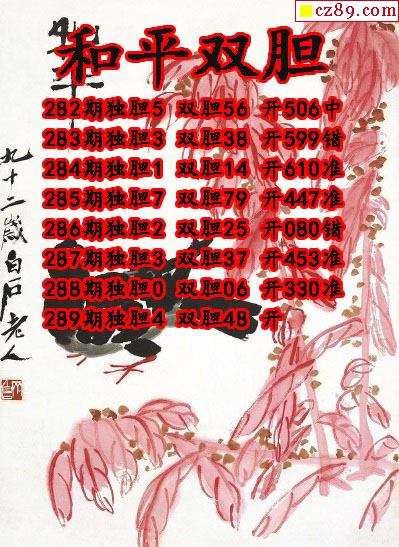 cz89.com
和平双胆
282期独胆5 双胆56 开506中
283期独胆3 双胆38 开599错
284期独胆1 双胆14 开610准
285期独胆7 双胆79 开447准
286期独胆2 双胆25 开080错
287期独胆3 双胆37 开453准
288期独胆0 双胆06 开330准
289期独胆4 双胆48 开
九十二岁白石老人